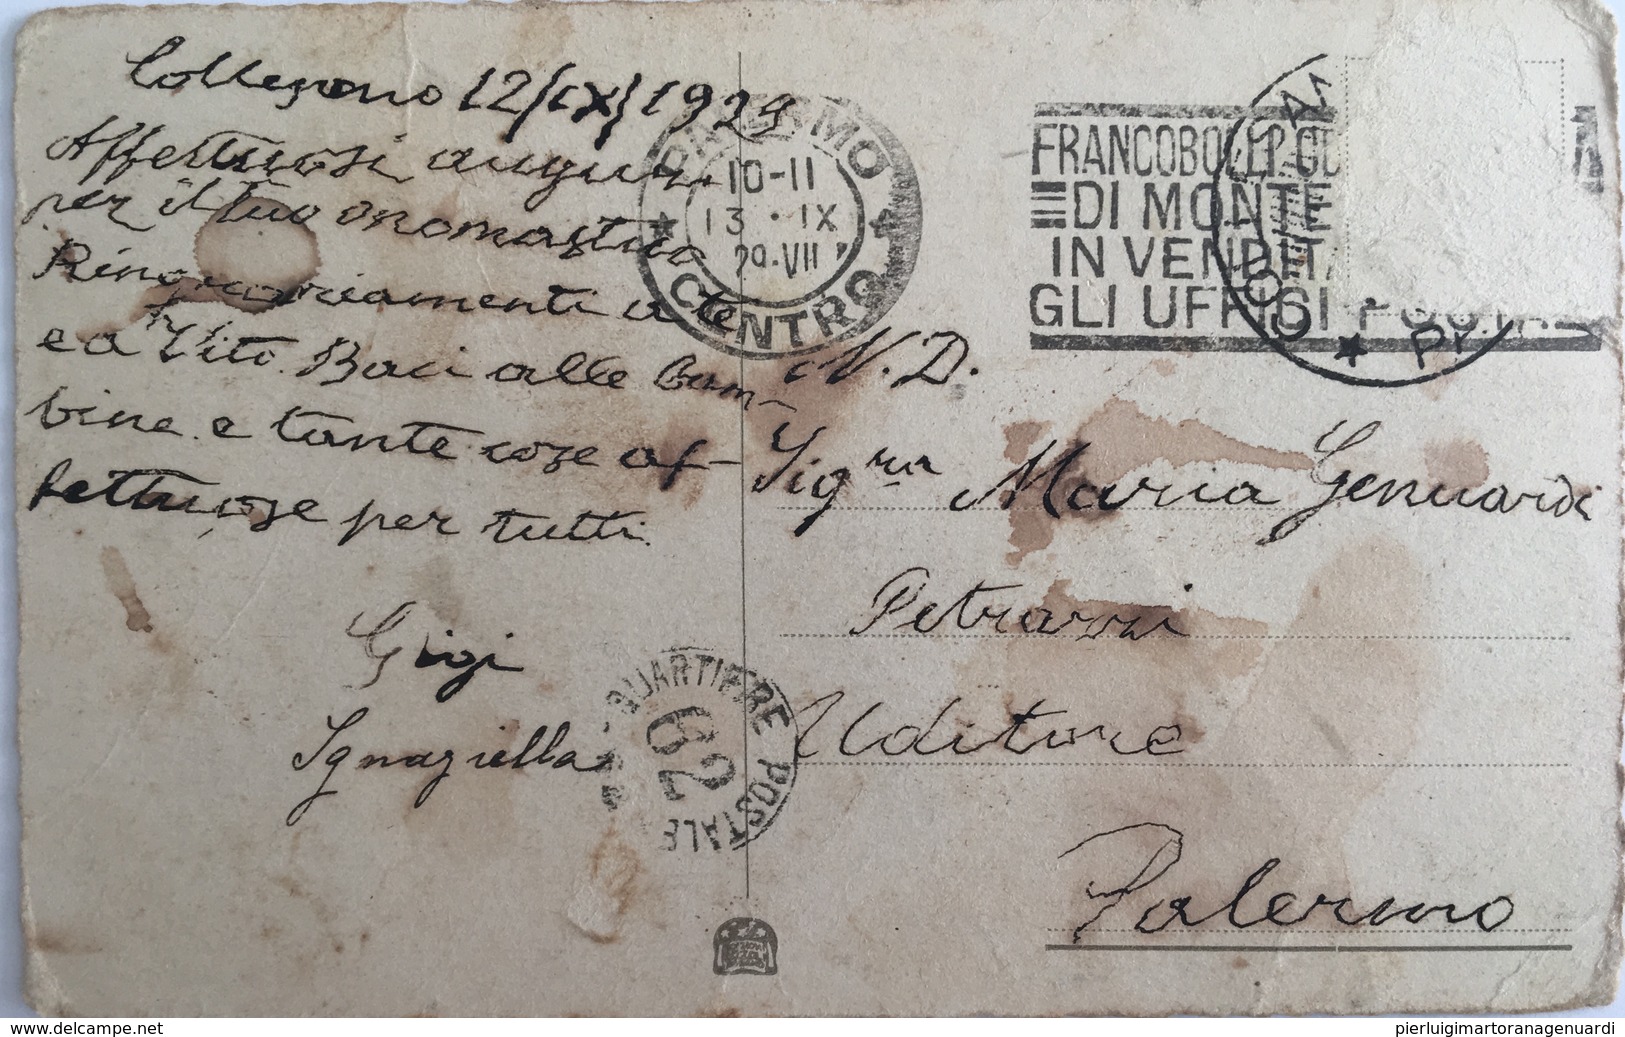 Collesano 12/IX/1929
Affettuosi auguri
per il tuo onomastico
Ringraziamenti a te
e a Vito. Baci alle bam-
bine e tante cose af-
fettuose per tutti.
Gigi
Ignaziella
PALERMO
10-11
13 · IX
29·VII
CENTRO
FRANCOBOLLI
DI MONTE
IN VENDITA
GLI UFFICI POSTALI
N. D.
Sigra Maria Genuardi
Petrazzi
Uditore
Palermo
QUARTIERE POSTALE
62
www.delcampe.net
pierluigimartoranagenuardi